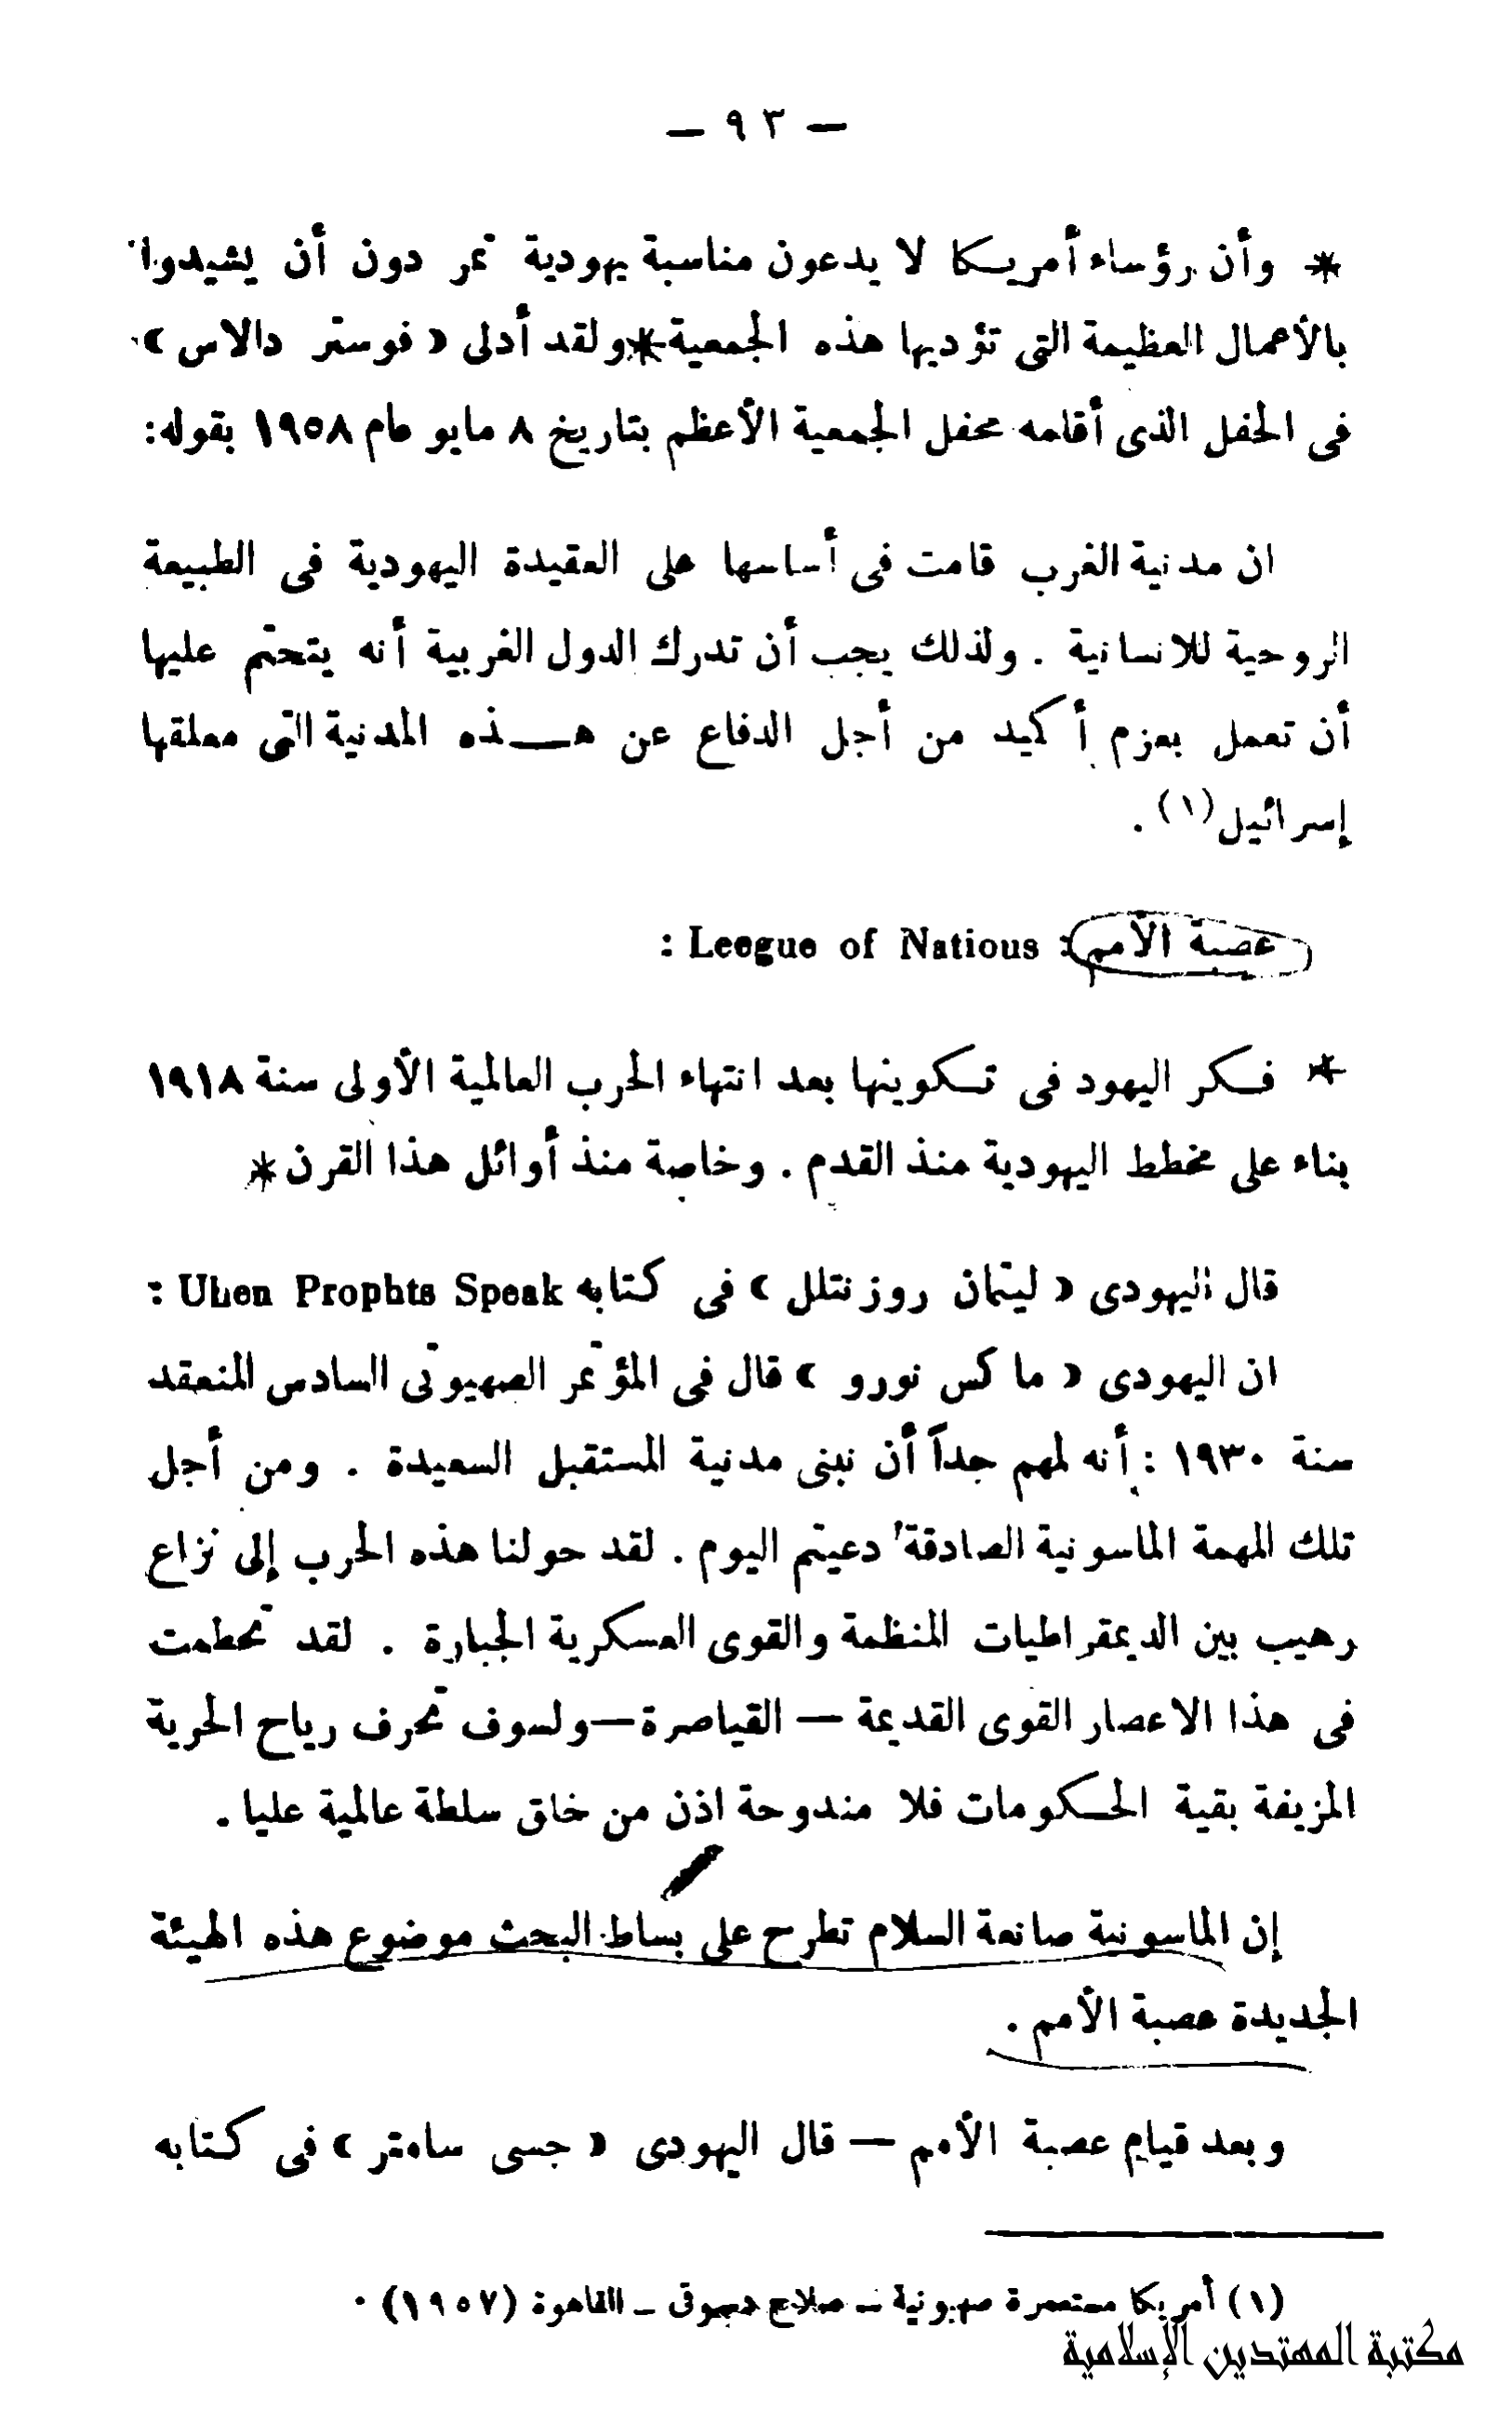 — ٩٣ —
* وأن رؤساء أمريكا لا يدعون مناسبة يهودية تمر دون أن يشيدوا
بالأعمال العظيمة التى تؤديها هذه الجمعية * ولقد أدلى « فوستر دالاس »
فى الحفل الذى أقامه محفل الجمعية الأعظم بتاريخ ٨ مايو عام ١٩٥٨ بقوله:
ان مدنية الغرب قامت فى أساسها على العقيدة اليهودية فى الطبيعة
الروحية للانسانية . ولذلك يجب أن تدرك الدول الغربية أنه يتحتم عليها
أن تعمل بعزم أكيد من أجل الدفاع عن هذه المدنية التى معلقها
إسرائيل (١) .
عصبة الأمم : Leegue of Natious :
* فكر اليهود فى تكوينها بعد انتهاء الحرب العالمية الأولى سنة ١٩١٨
بناء على مخطط اليهودية منذ القدم . وخاصة منذ أوائل هذا القرن *
قال اليهودى « ليتمان روزنتلل » فى كتابه Uhen Prophts Speak :
ان اليهودى « ماكس نورو » قال فى المؤتمر الصهيونى السادس المنعقد
سنة ١٩٣٠ : أنه لمهم جداً أن نبنى مدنية المستقبل السعيدة . ومن أجل
تلك المهمة الماسونية الصادقة دعيتم اليوم . لقد حولنا هذه الحرب إلى نزاع
رهيب بين الديمقراطيات المنظمة والقوى العسكرية الجبارة . لقد تحطمت
فى هذا الاعصار القوى القديمة — القياصرة — ولسوف تجرف رياح الحرية
المزيفة بقية الحكومات فلا مندوحة اذن من خلق سلطة عالمية عليا .
إن الماسونية صانعة السلام تطرح على بساط البحث موضوع هذه الهيئة
الجديدة عصبة الأمم .
وبعد قيام عصبة الأمم — قال اليهودى « جسى سامتر » فى كتابه
(١) أمريكا مستعمرة صهيونية — صلاح دسوقى — القاهرة (١٩٥٧) .
مكتبة المهتدين الإسلامية